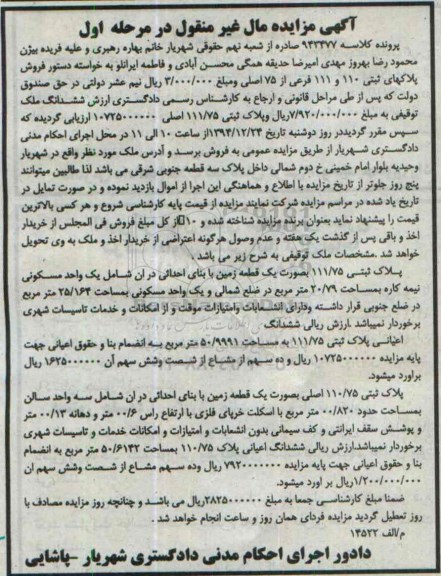 آگهی مزایده مال غیر منقول در مرحله اول
پرونده کلاسه ۹۴۳۴۷۷ صادره از شعبه نهم حقوقی شهریار خانم بهاره رهبری و علیه فریده بیژن
محمود رضا بهروز مهدی امیرضا حدیقه همگی محسن آبادی و فاطمه ایرانلو به خواسته دستور فروش
پلاکهای ثبتی ۱۱۰ و ۱۱۱ فرعی از ۷۵ اصلی ومبلغ ۳/۰۰۰/۰۰۰ ریال نیم عشر دولتی در حق صندوق
دولت که پس از طی مراحل قانونی و ارجاع به کارشناس رسمی دادگستری ارزش ششدانگ ملک
توقیفی به مبلغ ۷/۹۲۰/۰۰۰/۰۰۰ریال وپلاک ثبتی ۱۱۱/۷۵ اصلی ۱۰۷۲۵۰۰۰۰۰۰ ارزیابی گردیده که
سپس مقرر گردیددر روز دوشنبه تاریخ ۱۳۹۴/۱۲/۲۴از ساعت ۱۰ الی ۱۱ در محل اجرای احکام مدنی
دادگستری شهریار از طریق مزایده عمومی به فروش برسد و آدرس ملک مورد نظر واقع در شهریار
وحیدیه بلوار امام خمینی خ دوم شمالی داخل پلاک سه قطعه جنوبی شرقی می باشد لذا طالبین میتوانند
پنج روز جلوتر از تاریخ مزایده با اطلاع و هماهنگی این اجرا از اموال بازدید نموده و در صورت تمایل در
تاریخ یاد شده در مراسم مزایده شرکت نمایند مزایده از قیمت پایه کارشناسی شروع و هر کسی بالاترین
قیمت را پیشنهاد نماید بعنوان برنده مزایده شناخته شده و ۱۰٪از کل مبلغ فروش فی المجلس از خریدار
اخذ و باقی پس از گذشت یک هفته و عدم وصول هرگونه اعتراضی از خریدار اخذ و ملک به وی تحویل
خواهد شد .مشخصات ملک توقیفی به شرح زیر می باشد
پلاک ثبتی ۱۱۱/۷۵ بصورت یک قطعه زمین با بنای احداثی در ان شامل یک واحد مسکونی
نیمه کاره بمساحت ۲۰/۷۹ متر مربع در ضلع شمالی و یک واحد مسکونی بمساحت ۲۵/۱۶۴ متر مربع
در ضلع جنوبی قرار داشته ودارای انشعابات وامتیازات موقت و از امکانات و خدمات تاسیسات شهری
برخوردار نمیباشد .ارزش ریالی ششدانگ
اعیانی پلاک ثبتی ۱۱۱/۷۵ به مساحت ۵۰/۹۹۹۱ متر مربع به انضمام بنا و حقوق اعیانی جهت
پایه مزایده ۱۰۷۲۵۰۰۰۰۰۰ ریال و ده سهم از مشاع از شصت وشش سهم آن ۱۶۲۵۰۰۰۰۰۰ ریال
براورد میشود.
پلاک ثبتی ۱۱۰/۷۵ اصلی بصورت یک قطعه زمین با بنای احداثی در ان شامل سه واحد سالن
بمساحت حدود ۰۰/۸۲۰ متر مربع با اسکلت خرپای فلزی با ارتفاع راس ۰۰/۶ متر و دهانه ۰۰/۱۳ متر
و پوشش سقف ایرانتی و کف سیمانی بدون انشعابات و امتیازات و امکانات خدمات و تاسیسات شهری
برخوردار نمیباشد.ارزش ریالی ششدانگ اعیانی پلاک ۱۱۰/۷۵ بمساحت ۵۰/۶۱۴۲ متر مربع به انضمام
بنا و حقوق اعیانی جهت پایه مزایده ۷۹۲۰۰۰۰۰۰۰ ریال وده سهم مشاع از شصت وشش سهم ان
۱/۲۰۰/۰۰۰/۰۰۰ریال بر اورد میشود.
ضمنا مبلغ کارشناسی جمعا به مبلغ ۲۸۲۵۰۰۰۰۰۰ریال می باشد و چنانچه روز مزایده مصادف با
روز تعطیل گردید مزایده فردای همان روز و ساعت انجام خواهد شد .
م/الف ۱۴۵۲۲
دادور اجرای احکام مدنی دادگستری شهریار -پاشایی